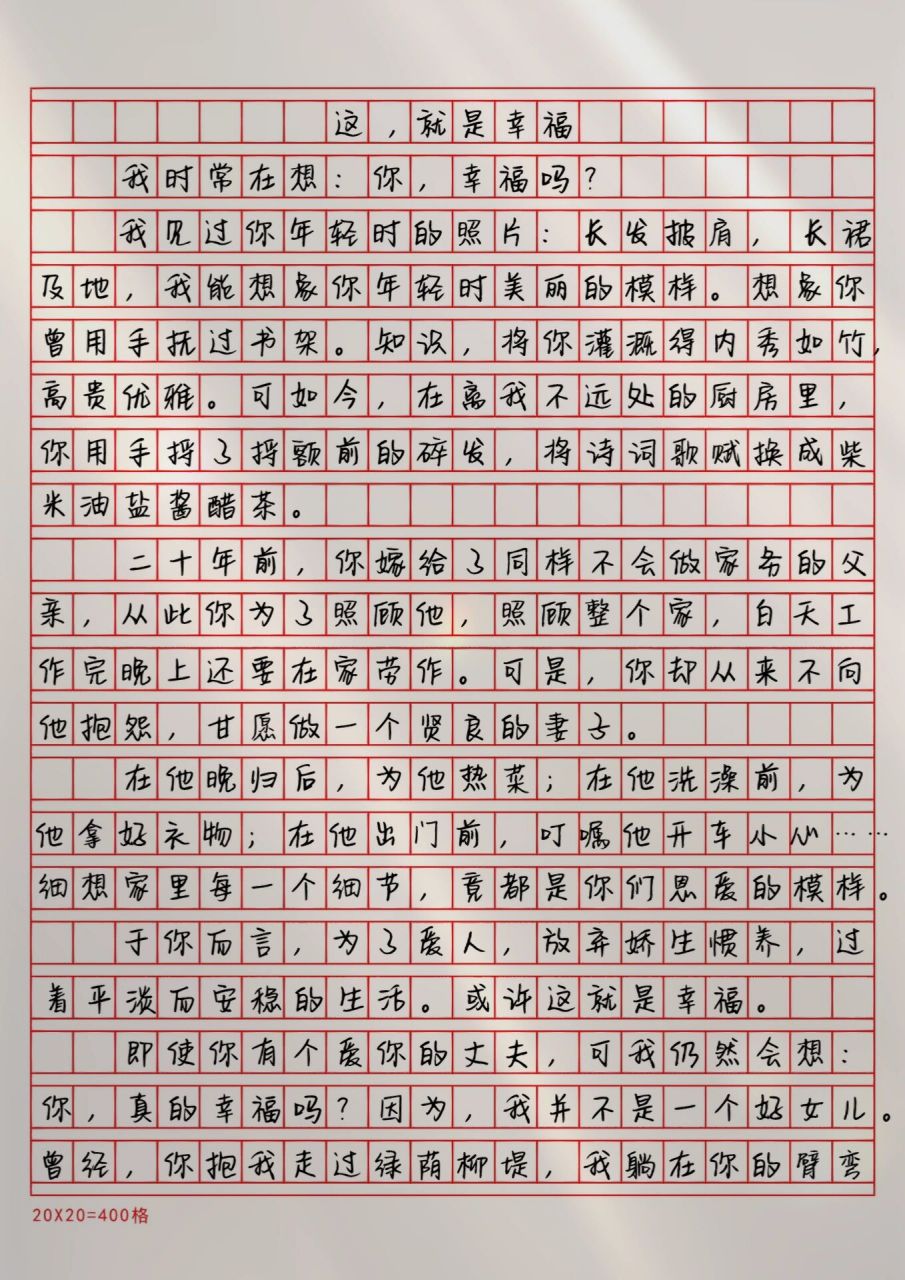 这,就是幸福
我时常在想:你,幸福吗?
我见过你年轻时的照片:长发披肩,长裙
及地,我能想象你年轻时美丽的模样。想象你
曾用手抚过书架。知识,将你灌溉得内秀如竹,
高贵优雅。可如今,在离我不远处的厨房里,
你用手捋了捋额前的碎发,将诗词歌赋换成柴
米油盐酱醋茶。
二十年前,你嫁给了同样不会做家务的父
亲,从此你为了照顾他,照顾整个家,白天工
作完晚上还要在家劳作。可是,你却从来不向
他抱怨,甘愿做一个贤良的妻子。
在他晚归后,为他热菜;在他洗澡前,为
他拿好衣物;在他出门前,叮嘱他开车小心……
细想家里每一个细节,竟都是你们恩爱的模样。
于你而言,为了爱人,放弃娇生惯养,过
着平淡而安稳的生活。或许这就是幸福。
即使你有个爱你的丈夫,可我仍然会想:
你,真的幸福吗?因为,我并不是一个好女儿。
曾经,你抱我走过绿荫柳堤,我躺在你的臂弯
20X20=400格